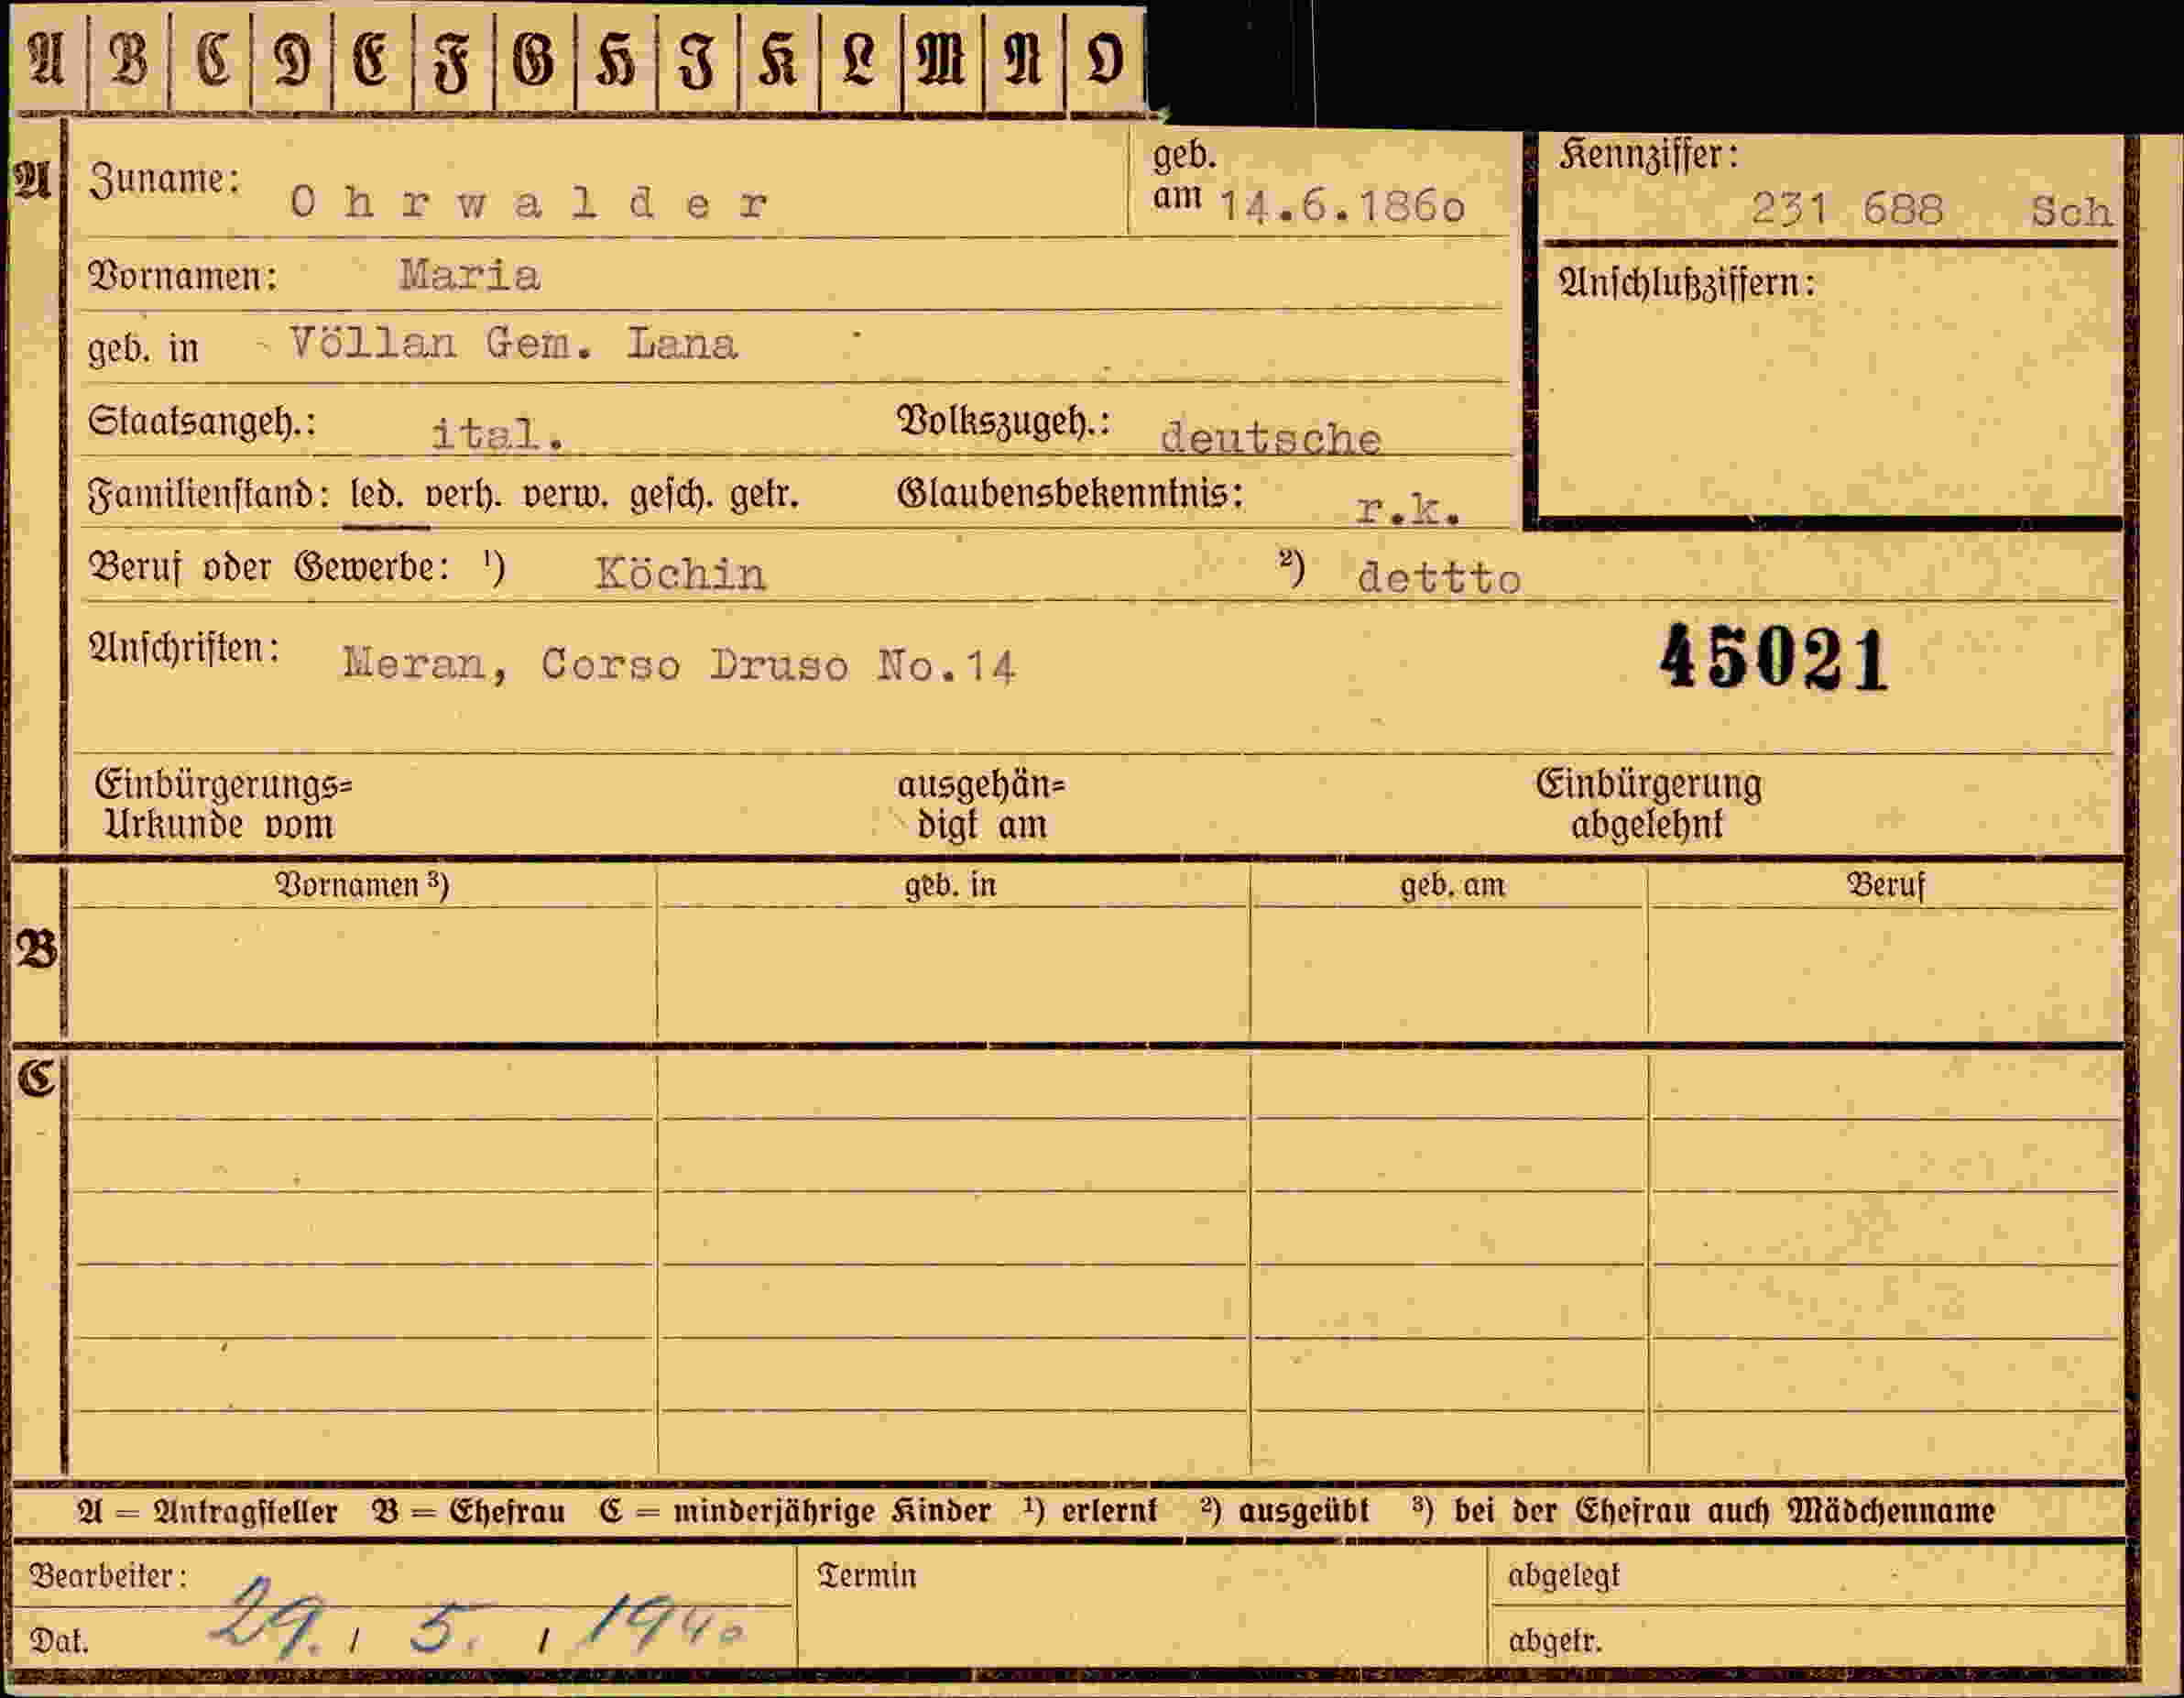 A B C D E F G H I K L M N O
A Zuname: Ohrwalder geb. am 14.6.1860 Kennziffer: 231 688 Sch
Vornamen: Maria Anschlußziffern:
geb. in Völlan Gem. Lana
Staatsangeh.: ital. Volkszugeh.: deutsche
Familienstand: led. verh. verw. gesch. getr. Glaubensbekenntnis: r.k.
Beruf oder Gewerbe: ¹) Köchin ²) dettto
Anschriften: Meran, Corso Druso No.14 45021
Einbürgerungs= ausgehän= Einbürgerung
Urkunde vom digt am abgelehnt
Vornamen ³) geb. in geb. am Beruf
B
C
A = Antragsteller B = Ehefrau C = minderjährige Kinder ¹) erlernt ²) ausgeübt ³) bei der Ehefrau auch Mädchenname
Bearbeiter: Termin abgelegt
Dat. 29. / 5. / 1940 abgetr.